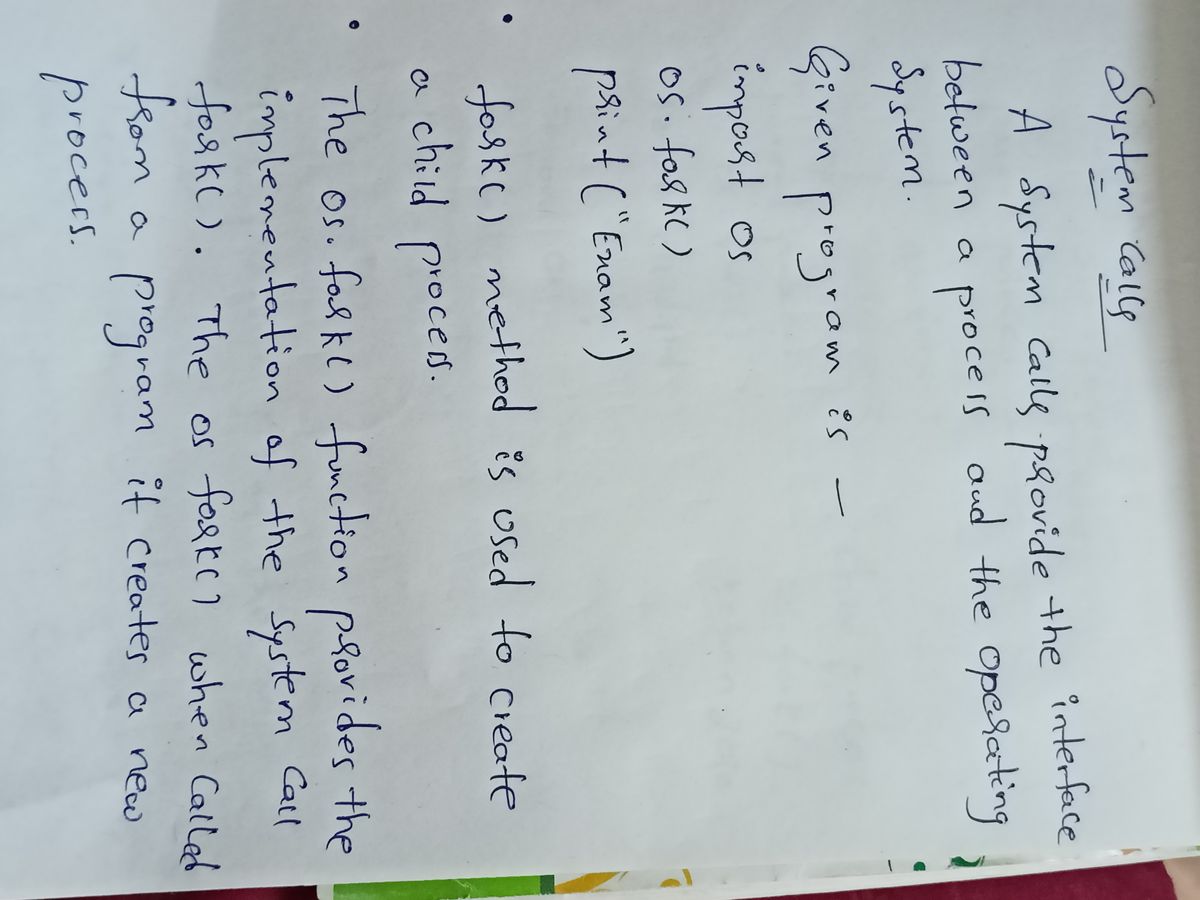 System Calls
A System Calls provide the interface
between a process and the operating
System.
Given program is —
import os
os.fork()
print("Exam")
• fork() method is used to create
a child process.
• The os.fork() function provides the
implementation of the System Call
fork(). The os fork() when Called
from a program it creates a new
process.